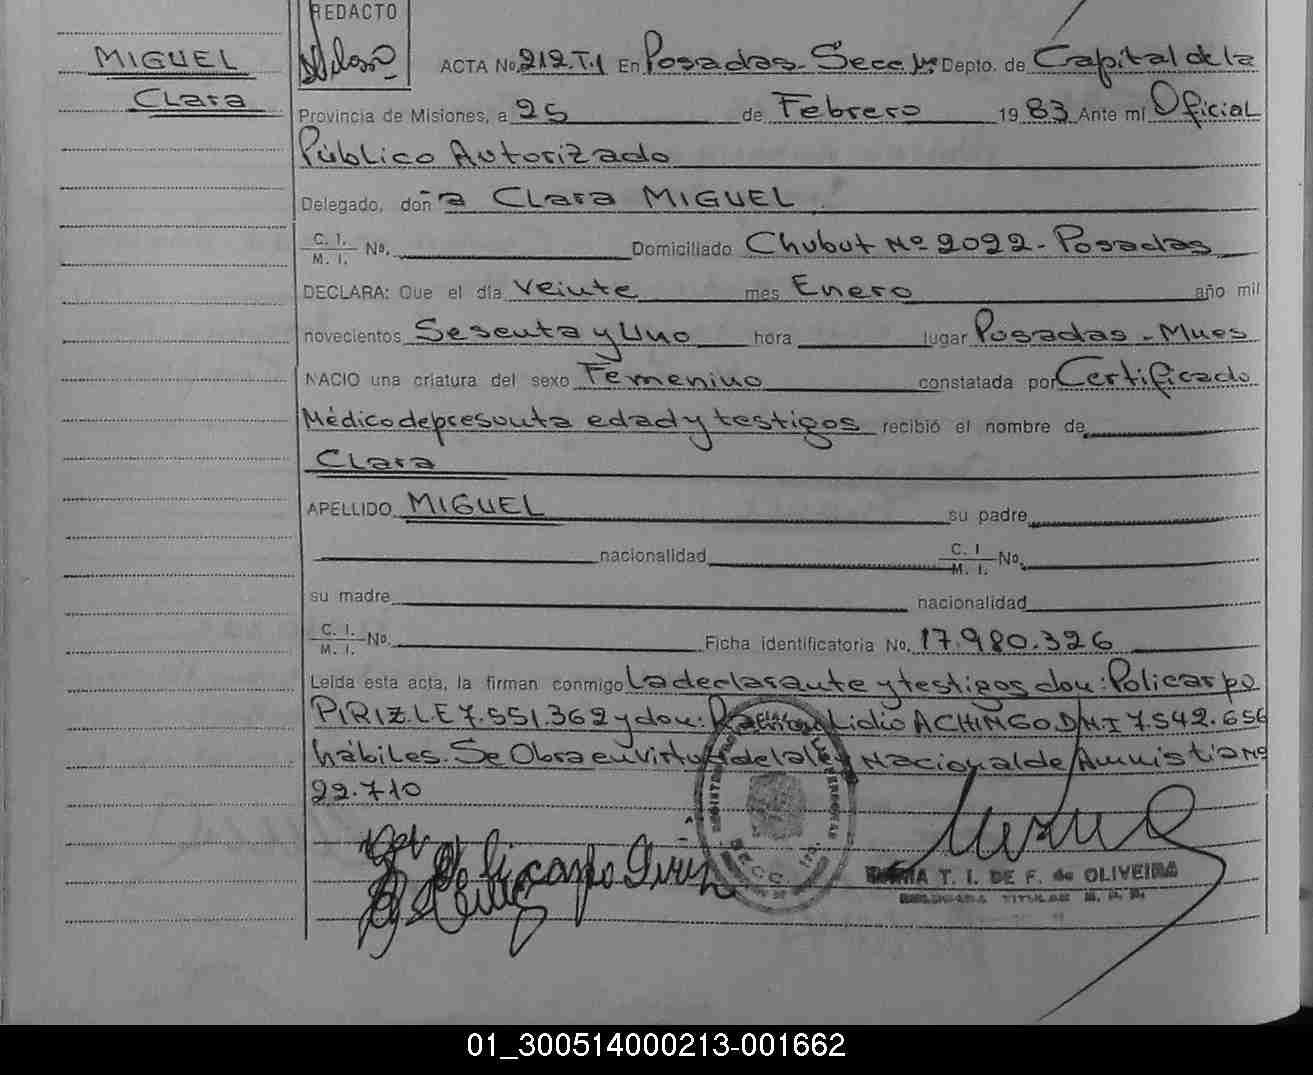 REDACTO
MIGUEL
Clara
ACTA No 212.T.1 En Posadas - Secc 1ra Depto. de Capital de la
Provincia de Misiones, a 25 de Febrero 1983 Ante mi Oficial
Público Autorizado
Delegado, doña Clara MIGUEL
C. I.
M. I. No. Domiciliado Chubut Nº 2022 - Posadas
DECLARA: Que el día Veinte mes Enero año mil
novecientos Sesenta y Uno hora lugar Posadas - Mnes
NACIO una criatura del sexo Femenino constatada por Certificado
Médico de presunta edad y testigos recibió el nombre de
Clara
APELLIDO MIGUEL su padre
nacionalidad C. I. M. I. No.
su madre nacionalidad
C. I.
M. I. No. Ficha identificatoria No. 17.980.326
Leída esta acta, la firman conmigo La declarante y testigos don: Policarpo
PIRIZ. LE 7.551.362 y don: Ramon Lidio ACHINGO. DNI 7.542.656
hábiles. Se Obra en virtud de la ley Nacional de Amnistia Nº
22.710
Policarpo Piriz
T. I. DE F. de OLIVEIRA
TITULAR
01_300514000213-001662